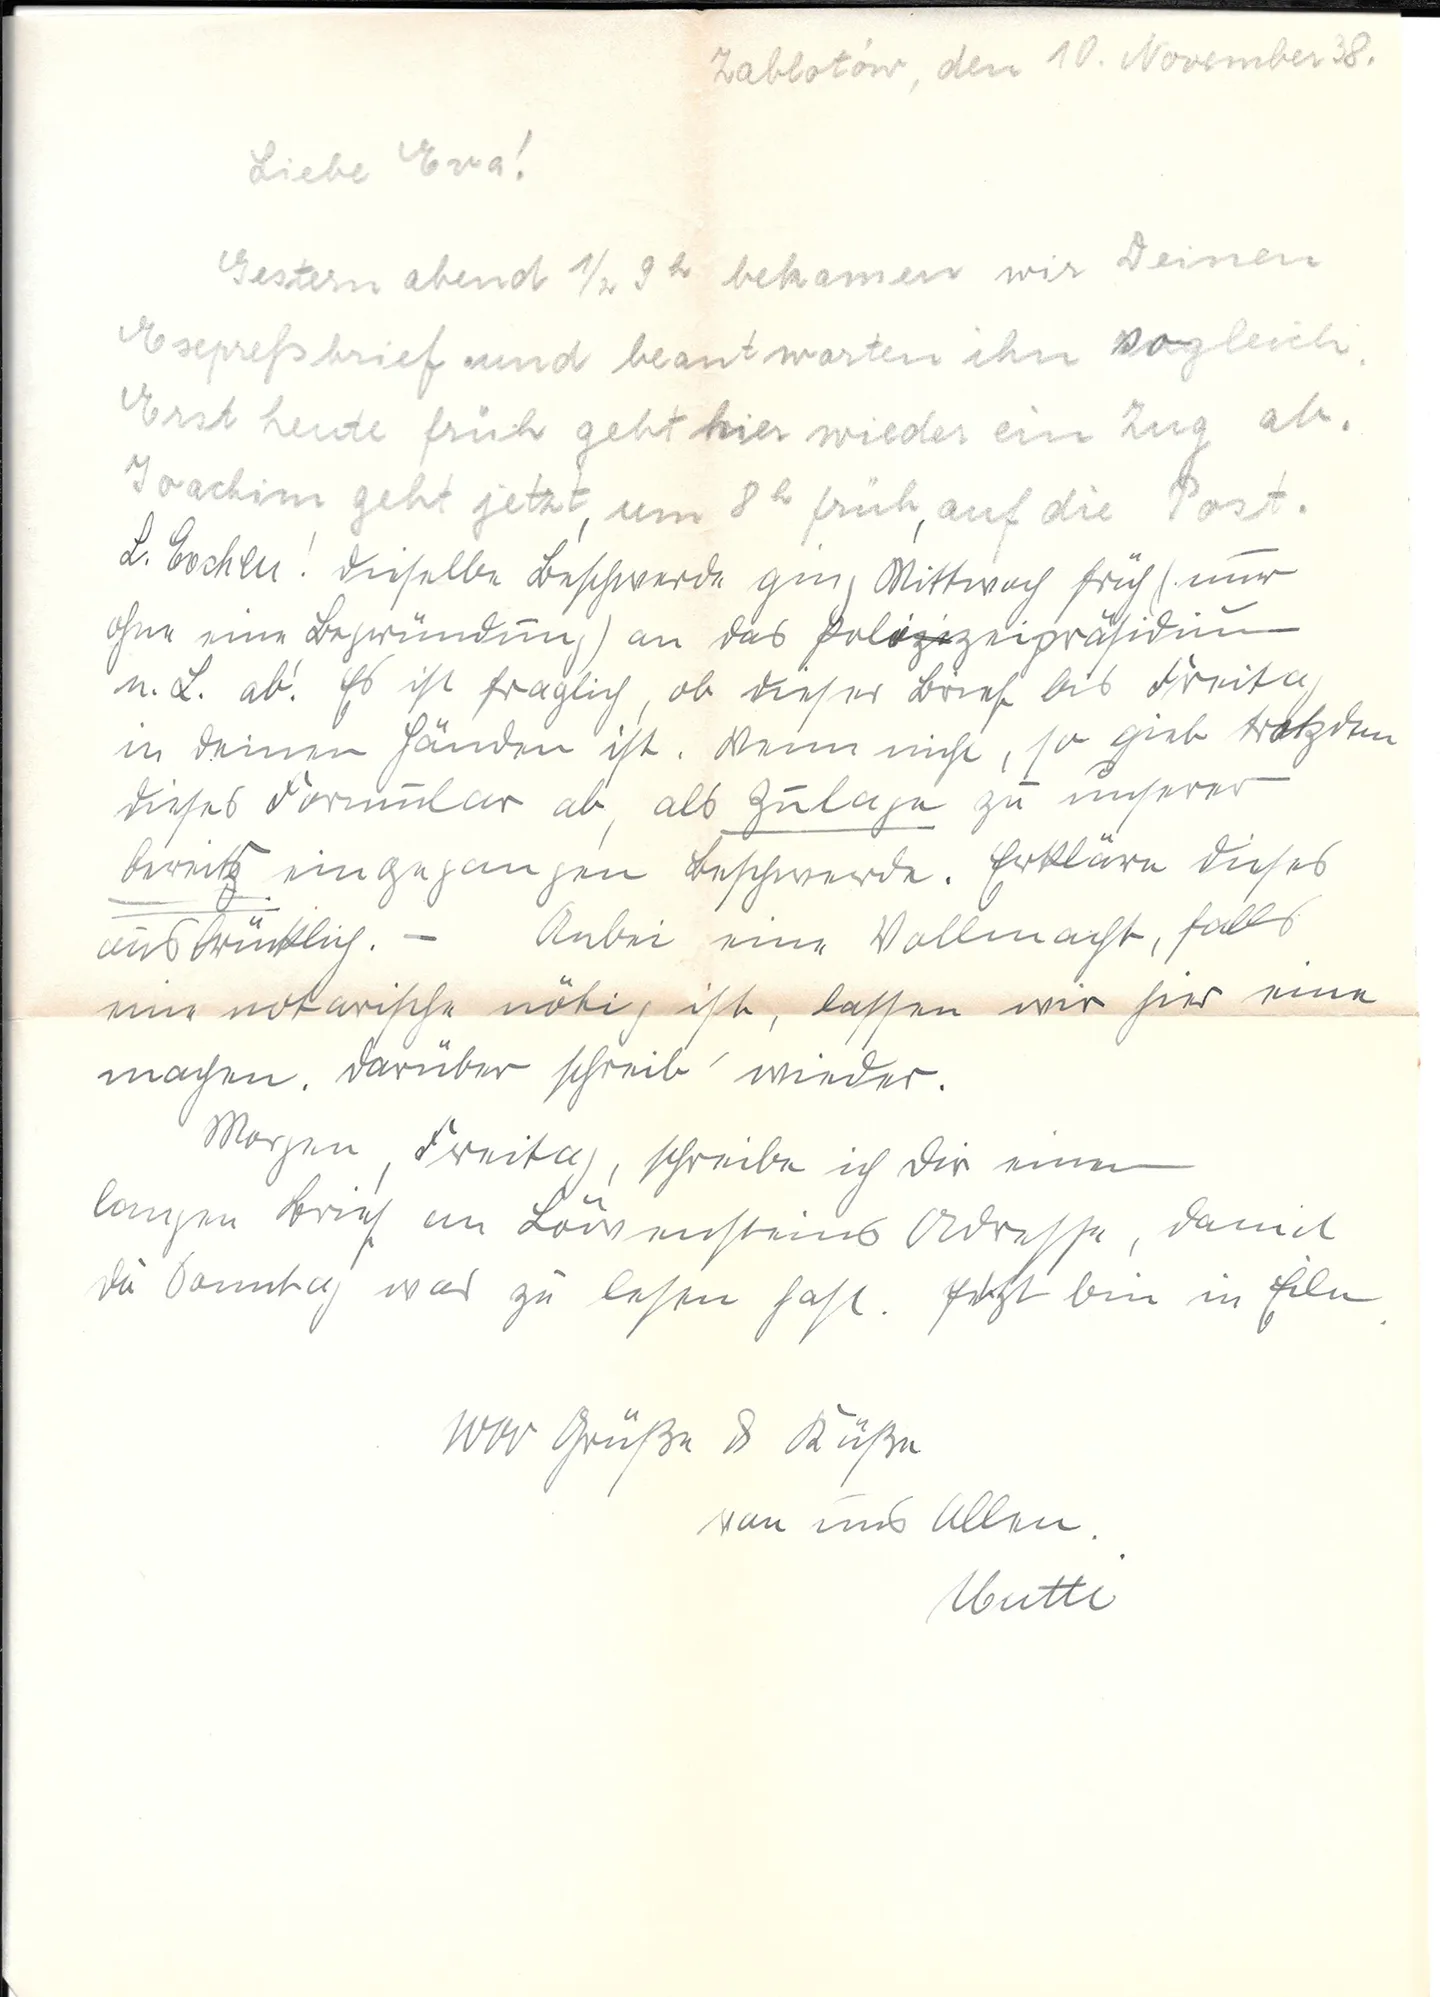 Zablotów, den 10. November 38.
Liebe Eva!
Gestern abend 1/2 9 h bekamen wir Deinen
Expreßbrief und beantworten ihn sogleich.
Erst heute früh geht hier wieder ein Zug ab.
Joachim geht jetzt, um 8 h früh, auf die Post.
L. Evchen! Dieselbe Beschwerde ging Mittwoch früh (nur
ohne eine Begründung) an das Polizeipräsidium
n. L. ab! Es ist fraglich, ob dieser Brief bis Freitag
in Deinen Händen ist. Wenn nicht, so gieb trotzdem
dieses Formular ab, als Zulage zu unserer
bereits eingegangen Beschwerde. Erkläre dieses
ausdrücklich. – Anbei eine Vollmacht, falls
eine notarische nötig ist, lassen wir hier eine
machen. Darüber schreib' wieder.
Morgen, Freitag, schreibe ich Dir einen
langen Brief an Löwensteins Adresse, damit
Du Sonntag was zu lesen hast. Jetzt bin in Eile.
1000 Grüße & Küße
von uns Allen.
Mutti